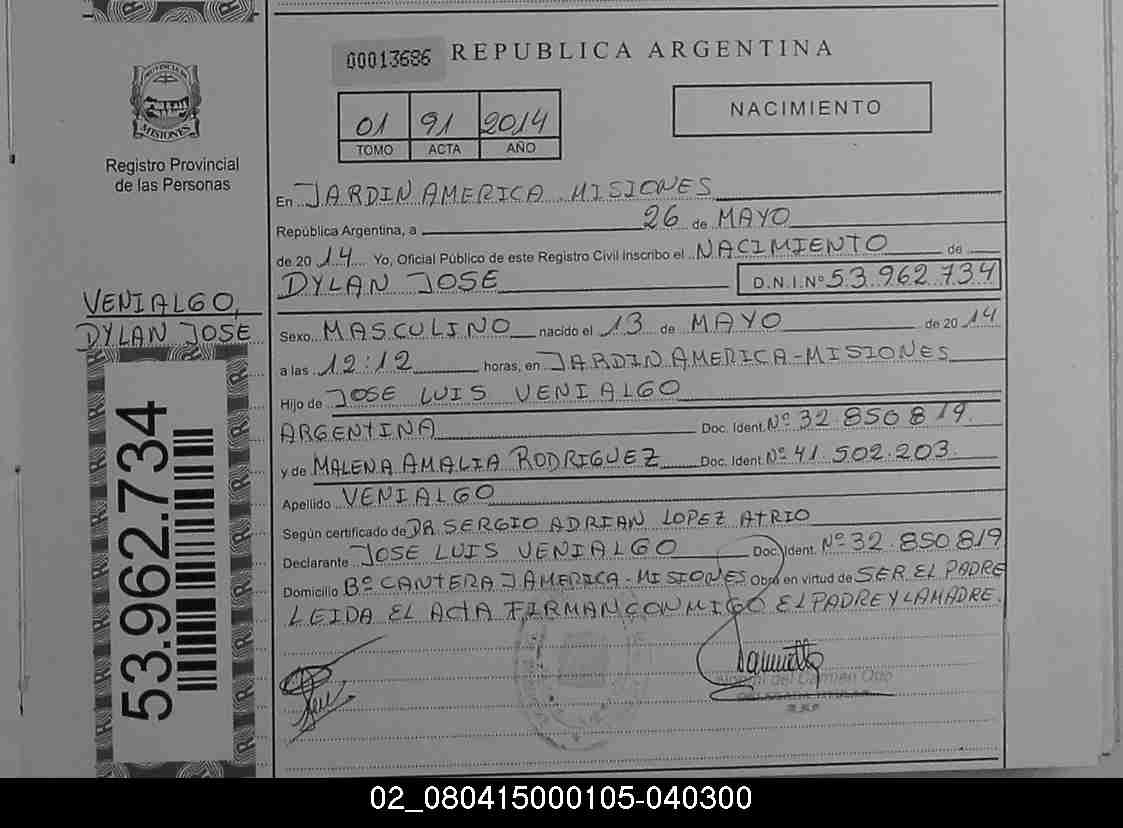 00013686 REPUBLICA ARGENTINA
PROVINCIA DE
MISIONES
Registro Provincial
de las Personas
01 91 2014
TOMO ACTA AÑO
NACIMIENTO
En JARDIN AMERICA. MISIONES
República Argentina, a 26 de MAYO
de 2014 Yo, Oficial Público de este Registro Civil inscribo el NACIMIENTO de
DYLAN JOSE D.N.I.Nº 53.962.734
VENIALGO,
DYLAN JOSE
53.962.734
Sexo MASCULINO nacido el 13 de MAYO de 2014
a las 12:12 horas, en JARDIN AMERICA-MISIONES
Hijo de JOSE LUIS VENIALGO
ARGENTINA Doc. Ident. Nº 32.850819.
y de MALENA AMALIA RODRIGUEZ Doc. Ident. Nº 41.502.203.
Apellido VENIALGO
Según certificado de DR. SERGIO ADRIAN LOPEZ ATRIO
Declarante JOSE LUIS VENIALGO Doc. Ident. Nº 32.850819
Domicilio Bº CANTERA J AMERICA-MISIONES Obra en virtud de SER EL PADRE
LEIDA EL ACTA FIRMAN CONMIGO EL PADRE Y LA MADRE.
del Carmen
02_080415000105-040300